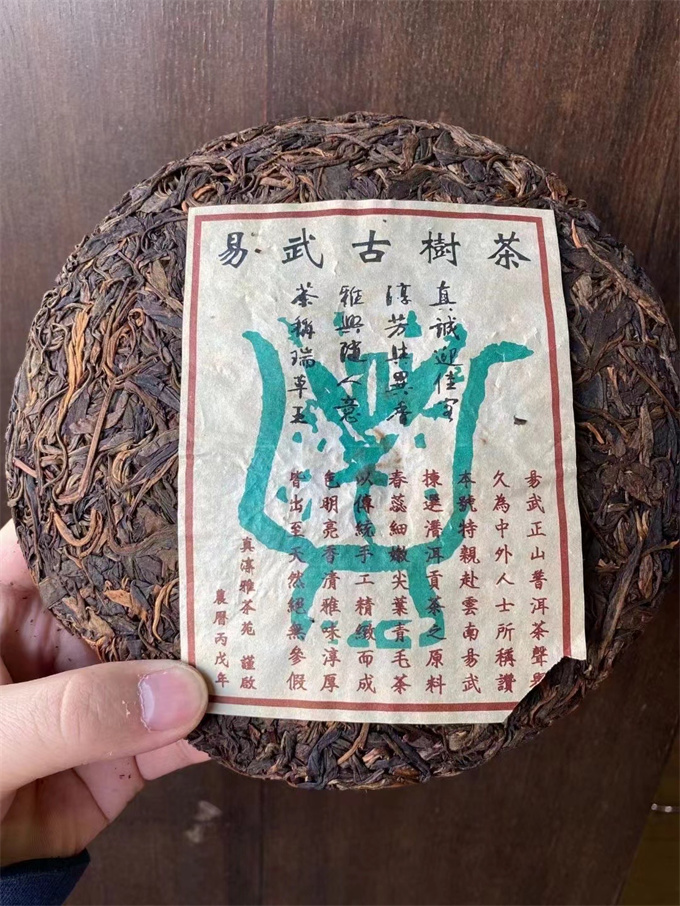 易武古樹茶
真誠迎佳客
淳芳生異香
雅興隨人意
茶稱瑞草王
易武正山普洱茶聲
久為中外人士所稱讚
本號特親赴雲南易武
揀選潽洱貢茶之原料
春蕊細嫩尖葉青毛茶
以傳統手工精緻而成
色明亮香清雅味淳厚
皆出至天然絕無參假
真淳雅茶苑 謹啟
農曆丙戊年